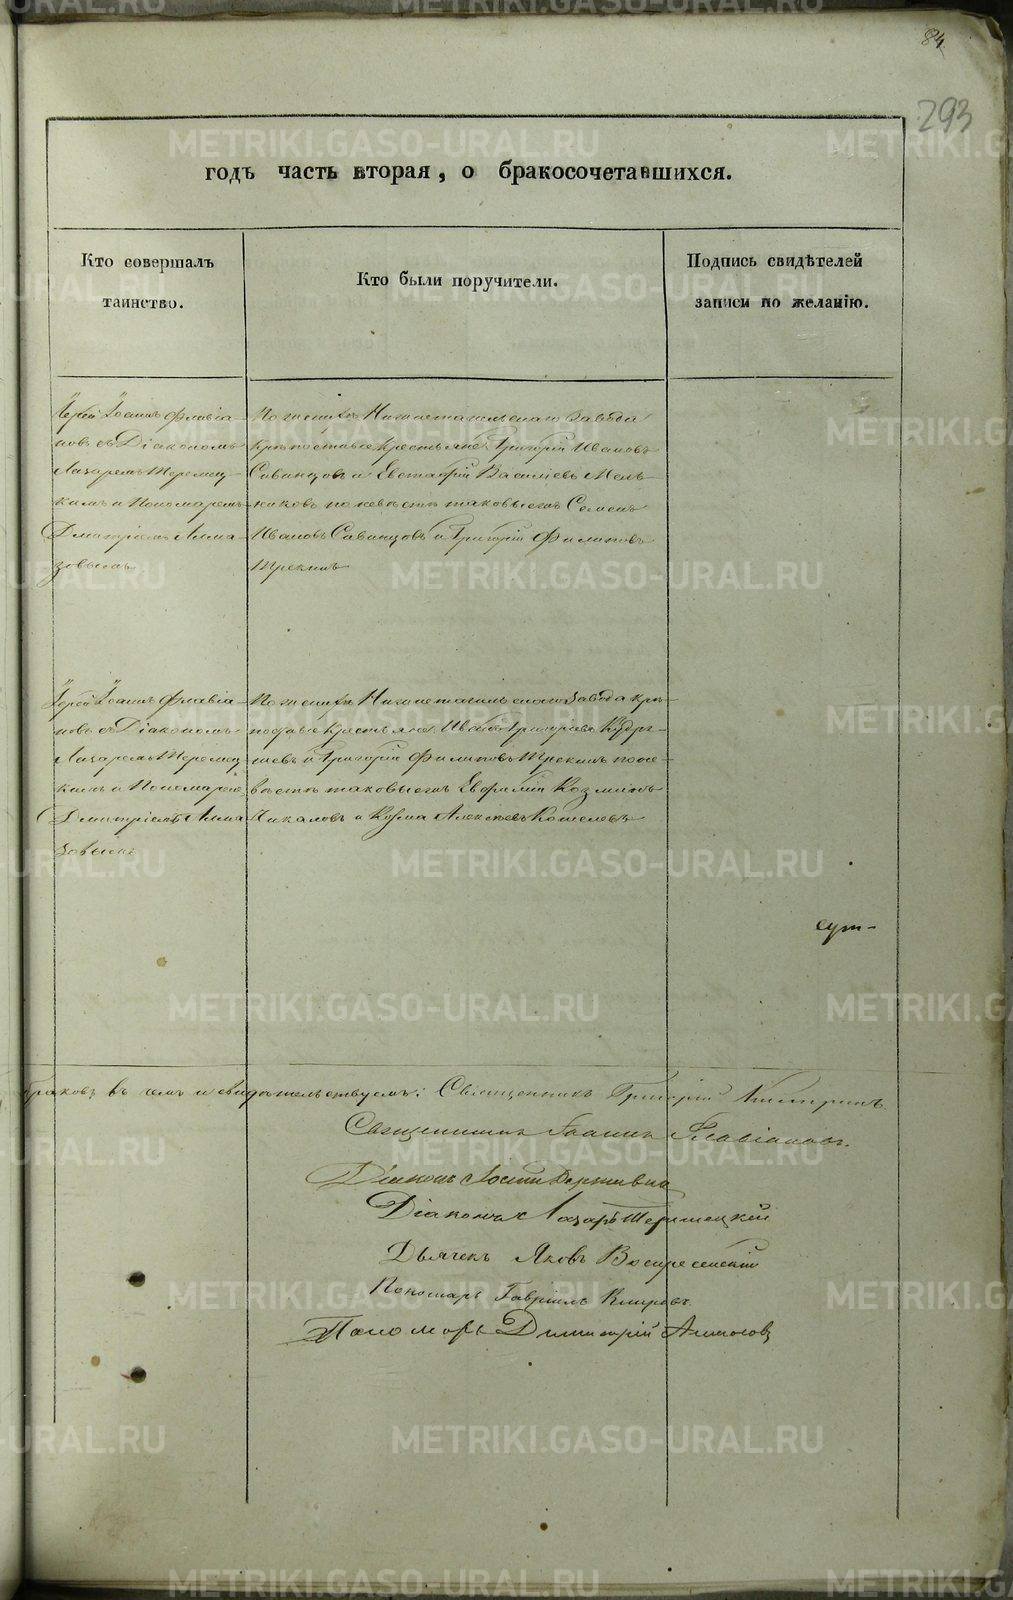 84
293
годъ часть вторая, о бракосочетавшихся.
Кто совершалъ таинство.
Кто были поручители.
Подпись свидѣтелей записи по желанію.
Іерей Іоаннъ Флавіа-
новъ съ Діакономъ
Лазаремъ
кимъ и Пономаремъ
Дмитріемъ Алма-
зовымъ
По женихѣ Нижнетагильскаго завода
крѣпостные крестьяне Григорій Ивановъ
Саванцовъ и Евстафій Васильевъ Мель-
никовъ по невѣстѣ таковыежъ Семенъ
Ивановъ Саванцовъ и Григорій Филиповъ
Трекинъ
Іерей Іоаннъ Флавіа-
новъ съ Діакономъ
Лазаремъ
кимъ и Пономаремъ
Дмитріемъ Алма-
зовымъ
По женихѣ Нижнетагильскаго завода крѣ-
постные крестьяне Григорьевъ
и Григорій Филиповъ Трекинъ по не-
вѣстѣ таковыежъ Козминъ
и Козма Алексѣевъ Кошелевъ
сут-
браковъ въ чемъ и свидѣтельствуемъ: Священникъ Григорій
Священникъ Іоаннъ Флавіановъ.
Діаконъ
Діаконъ Лазарь
Дьячекъ Яковъ Воскресенскій
Пономарь Гавріилъ
Пономарь Димитрій Алмазовъ
METRIKI.GASO-URAL.RU